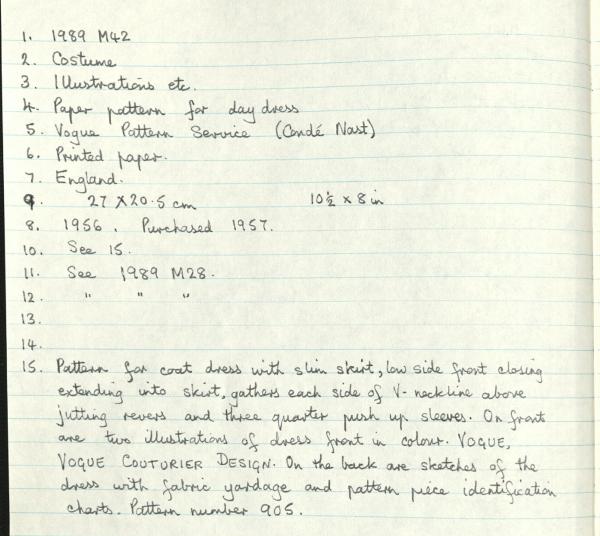 1. 1989 M42
2. Costume
3. Illustrations etc.
4. Paper pattern for day dress
5. Vogue Pattern Service (Condé Nast)
6. Printed paper.
7. England.
9. 27 X 20.5 cm 10½ x 8 in
8. 1956. Purchased 1957.
10. See 15.
11. See 1989 M28.
12. " " "
13.
14.
15. Pattern for coat dress with slim skirt, low side front closing
extending into skirt, gathers each side of V-neckline above
jutting revers and three quarter push up sleeves. On front
are two illustrations of dress front in colour. VOGUE,
VOGUE COUTURIER DESIGN. On the back are sketches of the
dress with fabric yardage and pattern piece identification
charts. Pattern number 905.